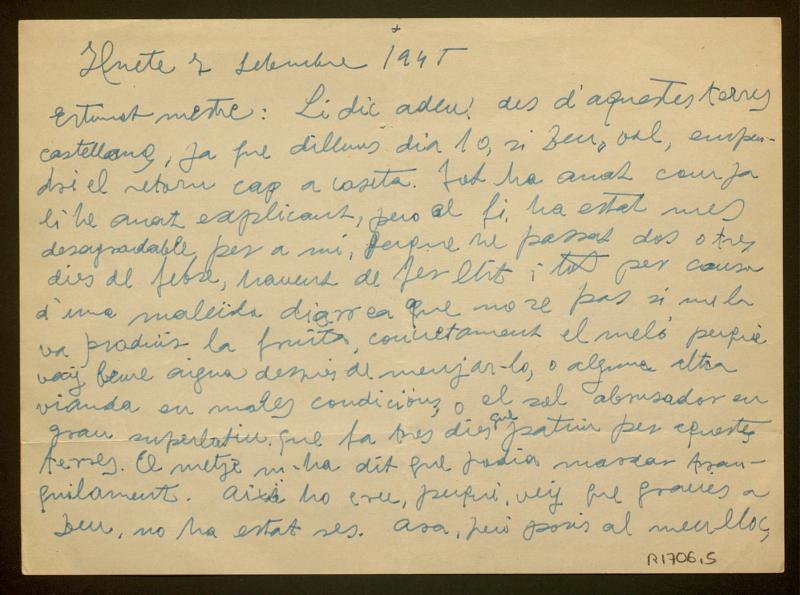 Huete 7 setembre 1945
Estimat mestre: Li dic adeu! des d'aquestes terres
castellanes, ja que dilluns dia 10, si Deu, vol, empen-
dré el retorn cap a caseta. Tot ha anat com ja
li he anat explicant, pero al fi, ha estat mes
desagradable per a mi, perque he passat dos o tres
dies de febre, havent de fer llit i tot per causa
d'una maleïda diarrea que no se pas si me la
va produir la fruita, concretament el meló perque
vaig beure aigua despres de menjar-lo, o alguna altra
vianda en males condicións, o el sol abrusador en
grau superlatiu que fa tres dies que patim per aquestes
terres. El metje m-ha dit que podia marxar tran-
quilament. Aixi ho crec, perque, veig que gracies a
Deu, no ha estat res. Ara, però posis al meu lloc,
R.1706,5